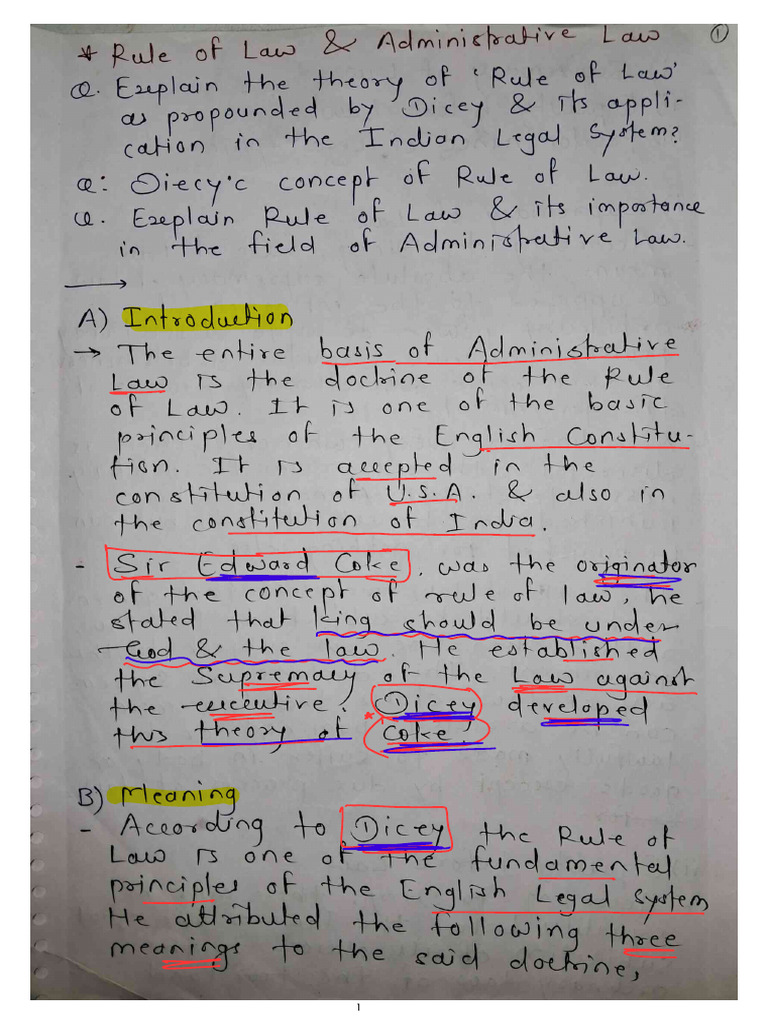 * Rule of Law & Administrative Law ①
Q. Explain the theory of 'Rule of Law'
as propounded by Dicey & its appli-
cation in the Indian Legal System?
Q: Diecy'c concept of Rule of Law.
Q. Explain Rule of Law & its importance
in the field of Administrative Law.
→
A) Introduction
→ The entire basis of Administrative
Law is the doctrine of the Rule
of Law. It is one of the basic
principles of the English Constitu-
tion. It is accepted in the
constitution of U.S.A. & also in
the constitution of India.
- Sir Edward Coke, was the originator
of the concept of rule of law, he
stated that king should be under
God & the law. He established
the Supremacy of the Law against
the executive. Dicey developed
this theory of * Coke.
B) Meaning
- According to Dicey the Rule of
Law is one of the fundamental
principles of the English Legal System
He attributed the following three
meanings to the said doctrine,
1